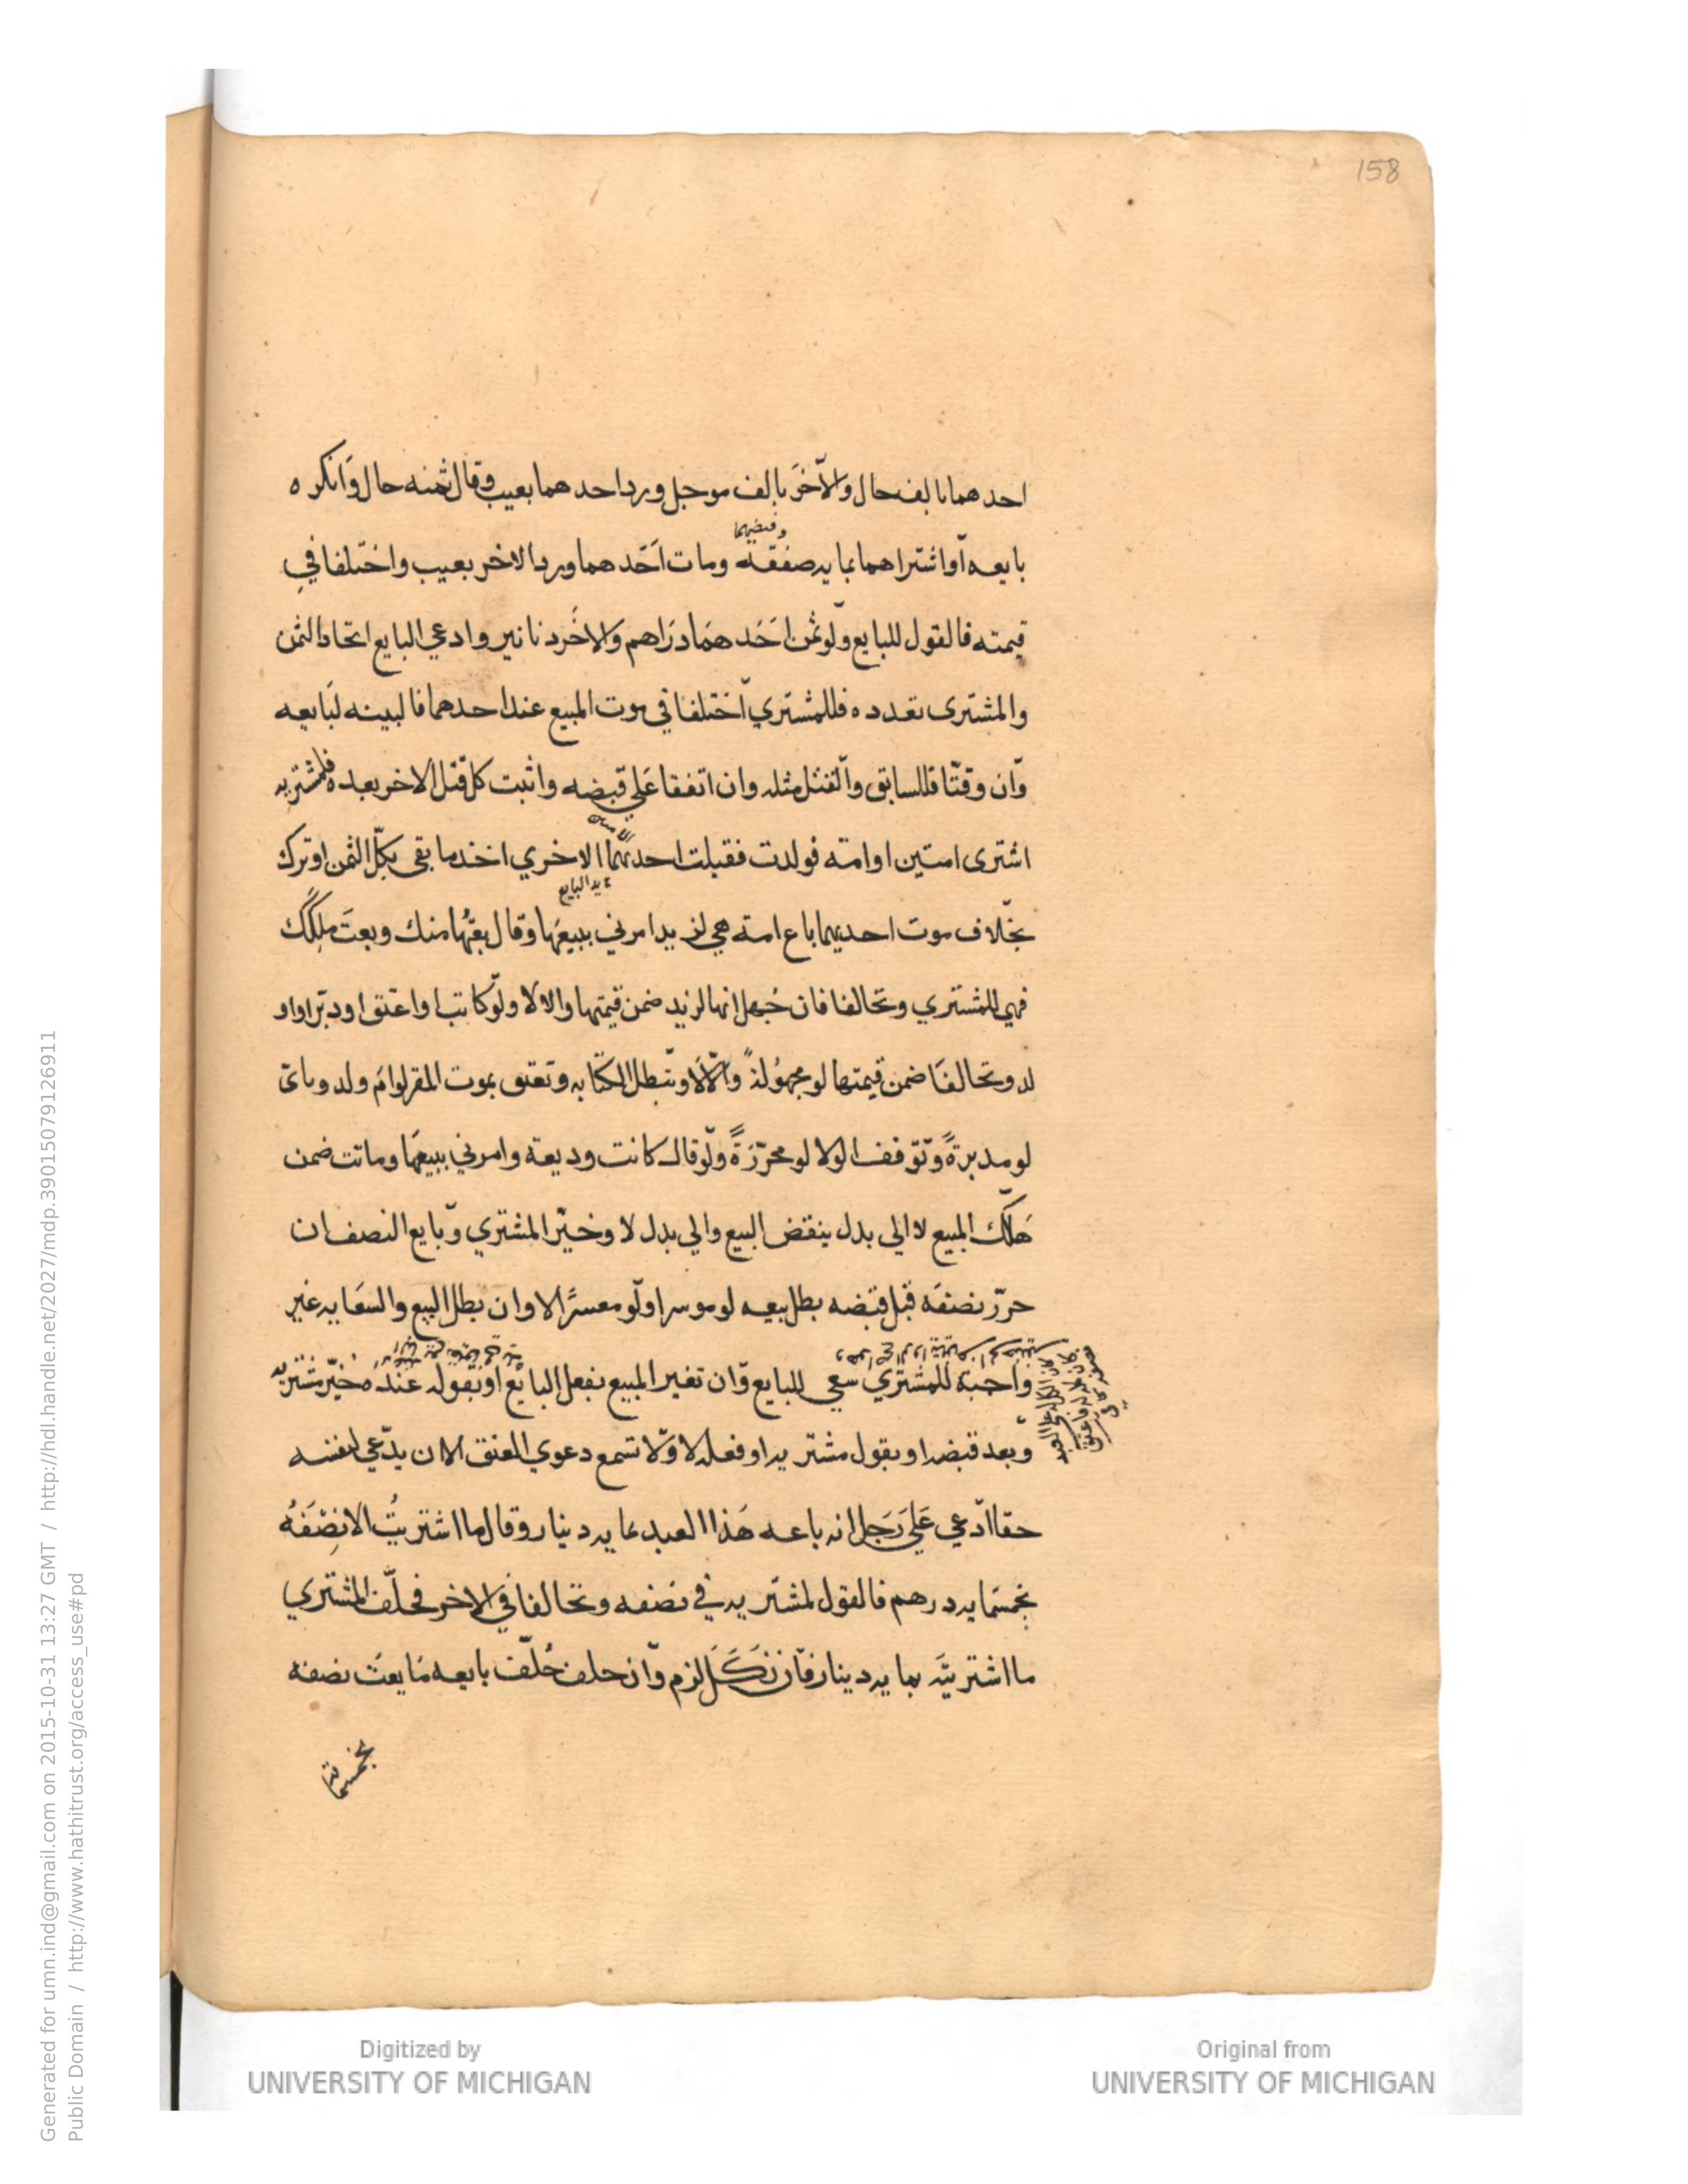 158
احدهما بالف حال والآخر بالف موجل ورد احدهما بعيب وقال ثمنه حال وانكره
وقبضهما
بايعه او اشتراهما بمايه صفقه ومات احدهما ورد الاخر بعيب واختلفا في
قيمته فالقول للبايع ولو ثمن احدهما دراهم والاخر دنانير وادعي البايع اتحاد الثمن
والمشترى تعدده فللمشتري اختلفا في موت المبيع عند احدهما فالبينه لبايعه
وان وقتا فللسابق والقتل مثله وان اتفقا علي قبضه واثبت كل قتل الاخر بعده فلمشتريه
اشترى امتين او امته فولدت فقبلت احديهما الاخري اخذ ما بقى بكل الثمن او ترك
عند البايع
بخلاف موت احديهما باع امته هي لزيد امرني ببيعها وقال بعتها منك وبعت ملكك
فهي للمشتري وتحالفا فان جهل انها لزيد ضمن قيمتها والا لا ولو كاتب او اعتق او دبر او او
لد وتحالفا ضمن قيمتها لو مجهولة والا لا وتبطل الكتابه وتعتق بموت المقر لو ام ولد وبائ
لو مدبرة وتوقف الولا لو محررة ولو قال كانت وديعة وامرني ببيعها وماتت ضمن
هلك المبيع لا الي بدل ينقض البيع والي بدل لا وخير المشتري وبايع النصف ان
حرر نصفه قبل قبضه بطل بيعه لو موسرا ولو معسرا لا وان بطل البيع والسعايه غير
واجبة للمشتري سعي للبايع وان تغير المبيع بفعل البايع او بقوله عنده خير مشتريه
وبعد قبضه او بقول مشتريه او فعله لا ولا تسمع دعوي العتق الا ان يدعي لنفسه
حقا ادعي علي رجل انه باعه هذا العبد بمايه دينار وقال ما اشتريت الا نصفه
بخمسمايه درهم فالقول لمشتريه في نصفه وتحالفا في الاخر فحلف المشتري
ما اشتريته بمايه دينار فان نكل لزم وان حلف حلف بايعه ما بعت نصفه
بخمسمائة
Generated for umn.ind@gmail.com on 2015-10-31 13:27 GMT / http://hdl.handle.net/2027/mdp.39015079126911
Public Domain / http://www.hathitrust.org/access_use#pd
Digitized by
UNIVERSITY OF MICHIGAN
Original from
UNIVERSITY OF MICHIGAN